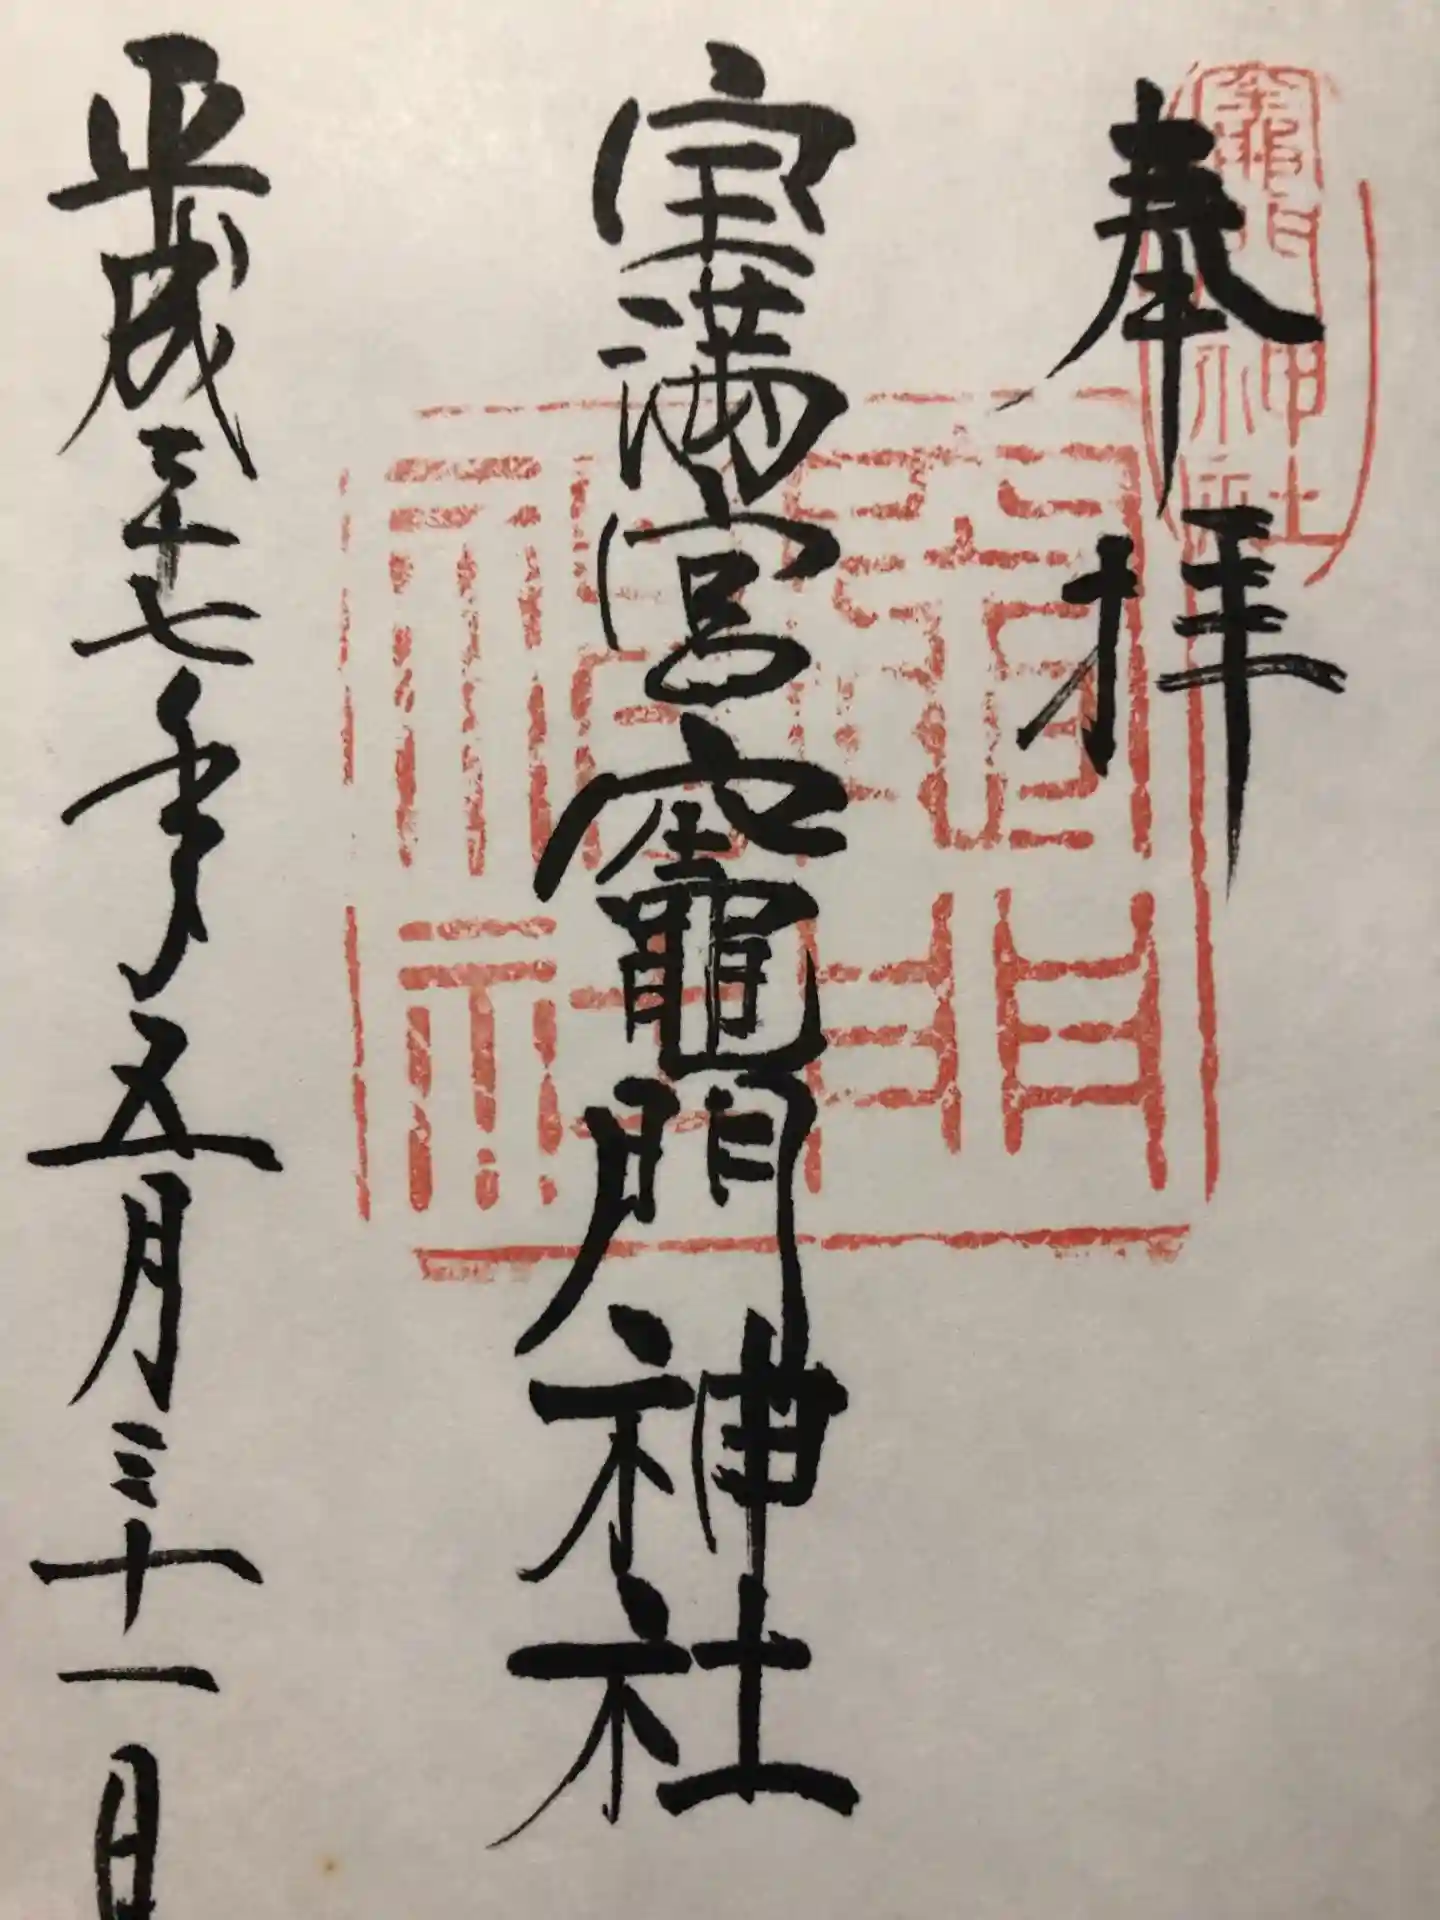 奉拝
竈門神社
宝満宮竈門神社
竈門
神社
平成二十七年五月三十一日